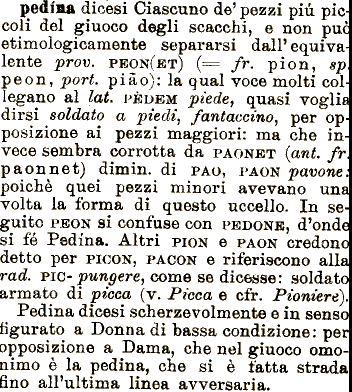 pedína dicesi Ciascuno de' pezzi piú pic-
coli del giuoco degli scacchi, e non può
etimologicamente separarsi dall' equiva-
lente prov. PEON(ET) (= fr. pion, sp.
peon, port. pião): la qual voce molti col-
legano al lat. PÈDEM piede, quasi voglia
dirsi soldato a piedi, fantaccino, per op-
posizione ai pezzi maggiori: ma che in-
vece sembra corrotta da PAONET (ant. fr.
paonnet) dimin. di PAO, PAON pavone:
poichè quei pezzi minori avevano una
volta la forma di questo uccello. In se-
guito PEON si confuse con PEDONE, d'onde
si fé Pedína. Altri PION e PAON credono
detto per PICON, PACON e riferiscono alla
rad. PIC- pungere, come se dicesse: soldato
armato di picca (v. Picca e cfr. Pioniere).
Pedina dicesi scherzevolmente e in senso
figurato a Donna di bassa condizione: per
opposizione a Dama, che nel giuoco omo-
nimo è la pedina, che si è fatta strada
fino all'ultima linea avversaria.